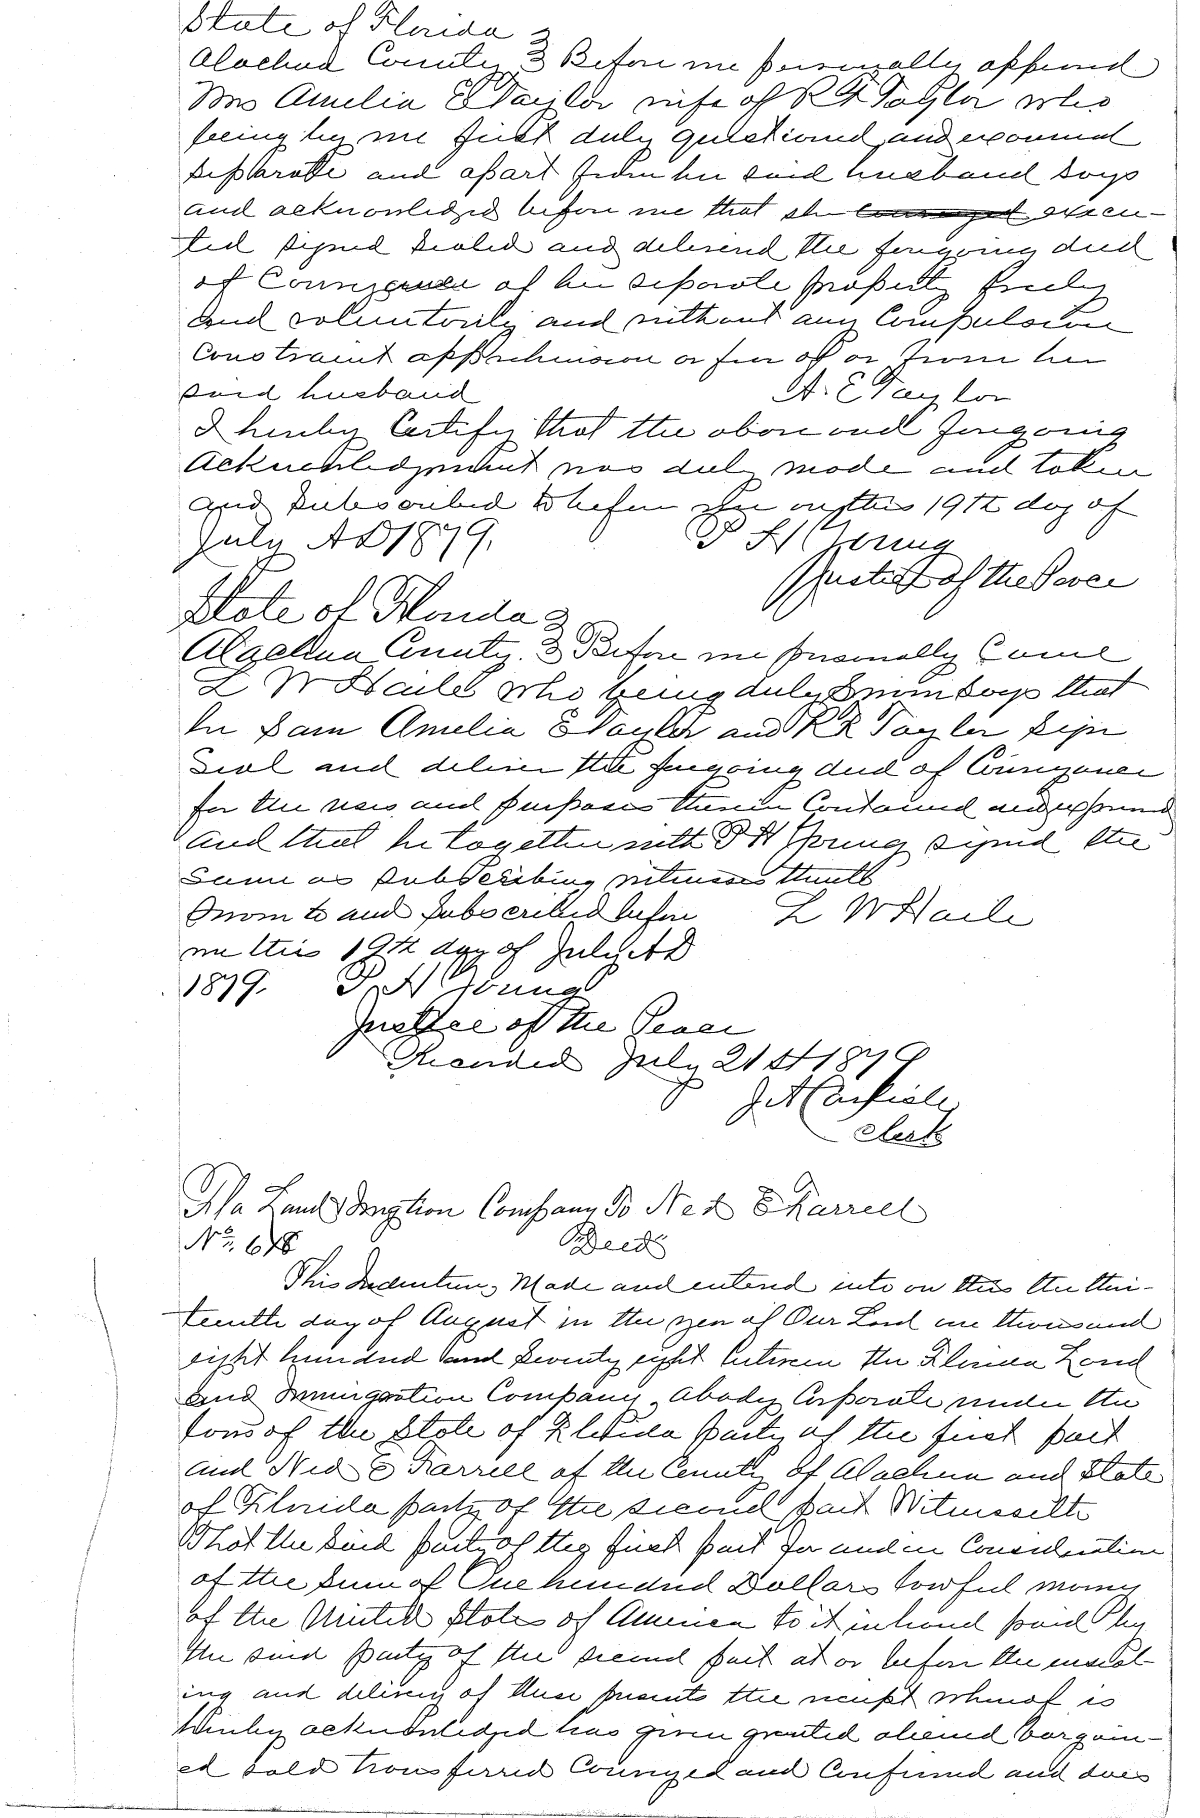 State of Florida }
Alachua County } Before me personally appeared
Mrs Amelia E Taylor wife of R R Taylor who
being by me first duly questioned and examined
seperate and apart from her said husband says
and acknowledged before me that she conveyed execu-
ted signed sealed and delivered the foregoing deed
of Conveyance of her seperate property freely
and voluntarily and without any Compulsion
Constraint apprehension or fear of or from her
said husband A. E Taylor
I hereby Certify that the above and foregoing
Acknowledgment was duly made and taken
and subscribed to before me on this 19th day of
July AD 1879. P H Young
Justice of the Peace
State of Florida }
Alachua County. } Before me personally Came
L W Haile who being duly Sworn says that
he saw Amelia E Taylor and R R Taylor sign
seal and deliver the foregoing deed of Conveyance
for the uses and purposes therein Contained and expressed
and that he together with P H Young signed the
same as subscribing witnesses thereto
Sworn to and subscribed before L W Haile
me this 19th day of July AD
1879. P. H Young
Justice of the Peace
Recorded July 21st 1879
J. A Carlisle
Clerk
Fla Land & Imgtion Company To Ned E Farrell
No. 678 Deed
This Indenture, Made and entered into on this the thir-
teenth day of August in the year of Our Lord one thousand
eight hundred and Seventy eight between the Florida Land
and Immigration Company, a body Corporate under the
laws of the State of Florida party of the first part
and Ned E Farrell of the County of Alachua and State
of Florida party of the second part Witnesseth
That the said party of the first part for and in Consideration
of the sum of One hundred Dollars lawful money
of the United States of America to it in hand paid by
the said party of the second part at or before the enseal-
ing and delivery of these presents the receipt whereof is
hereby acknowledged has given granted aliened bargain-
ed sold transferred Conveyed and Confirmed and does